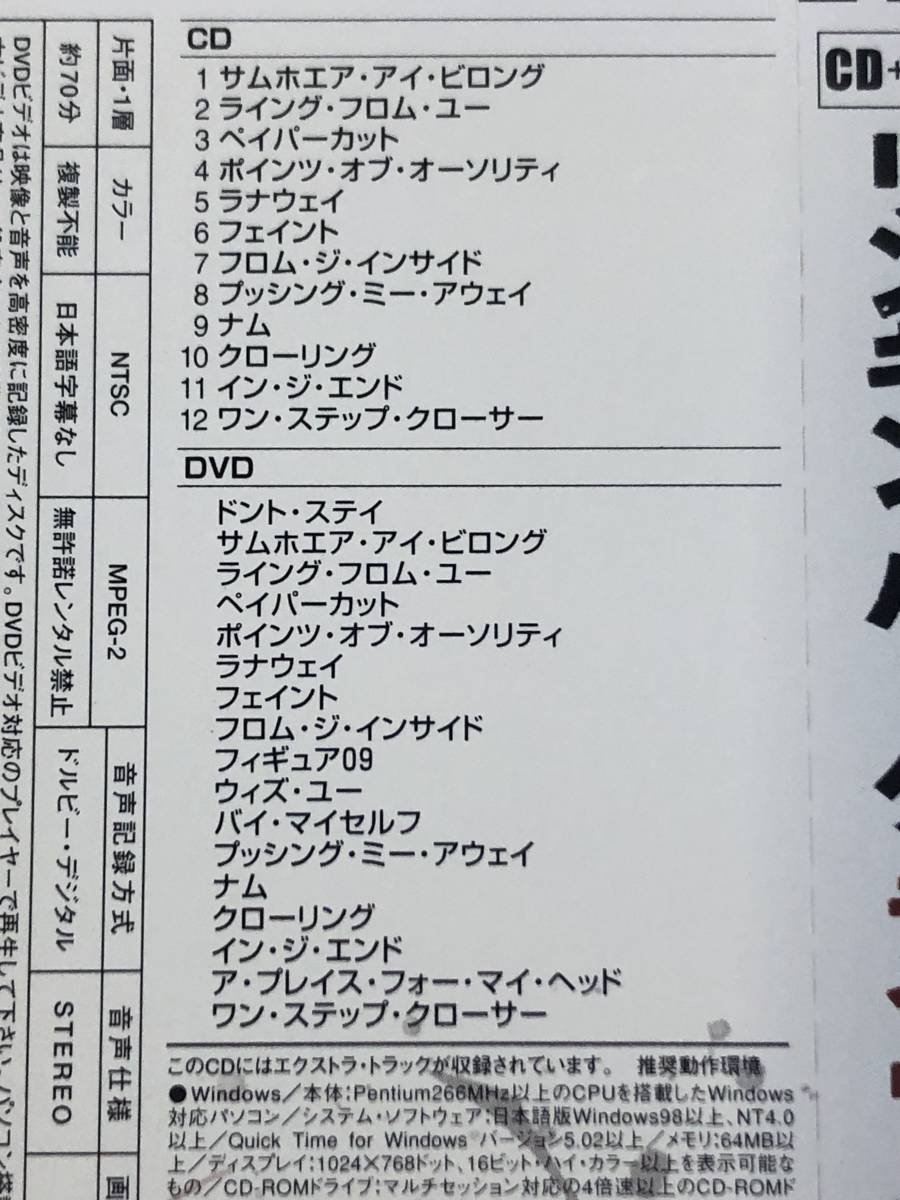 CD
1 サムホエア・アイ・ビロング
2 ライング・フロム・ユー
3 ペイパーカット
4 ポインツ・オブ・オーソリティ
5 ラナウェイ
6 フェイント
7 フロム・ジ・インサイド
8 プッシング・ミー・アウェイ
9 ナム
10 クローリング
11 イン・ジ・エンド
12 ワン・ステップ・クローサー
DVD
ドント・ステイ
サムホエア・アイ・ビロング
ライング・フロム・ユー
ペイパーカット
ポインツ・オブ・オーソリティ
ラナウェイ
フェイント
フロム・ジ・インサイド
フィギュア09
ウィズ・ユー
バイ・マイセルフ
プッシング・ミー・アウェイ
ナム
クローリング
イン・ジ・エンド
ア・プレイス・フォー・マイ・ヘッド
ワン・ステップ・クローサー
このCDにはエクストラ・トラックが収録されています。 推奨動作環境
●Windows/本体:Pentium266MHz以上のCPUを搭載したWindows
対応パソコン/システム・ソフトウェア:日本語版Windows98以上、NT4.0
以上/Quick Time for Windows バージョン5.02以上/メモリ:64MB以
上/ディスプレイ:1024×768ドット、16ビット・ハイ・カラー以上を表示可能な
もの/CD-ROMドライブ:マルチセッション対応の4倍速以上のCD-ROMド
片面・1層 カラー NTSC MPEG-2 音声記録方式 音声仕様 画
約70分 複製不能 日本語字幕なし 無許諾レンタル禁止 ドルビー・デジタル STEREO
DVDビデオは映像と音声を高密度に記録したディスクです。DVDビデオ対応のプレイヤーで再生して下さい。パソコン搭
CD+